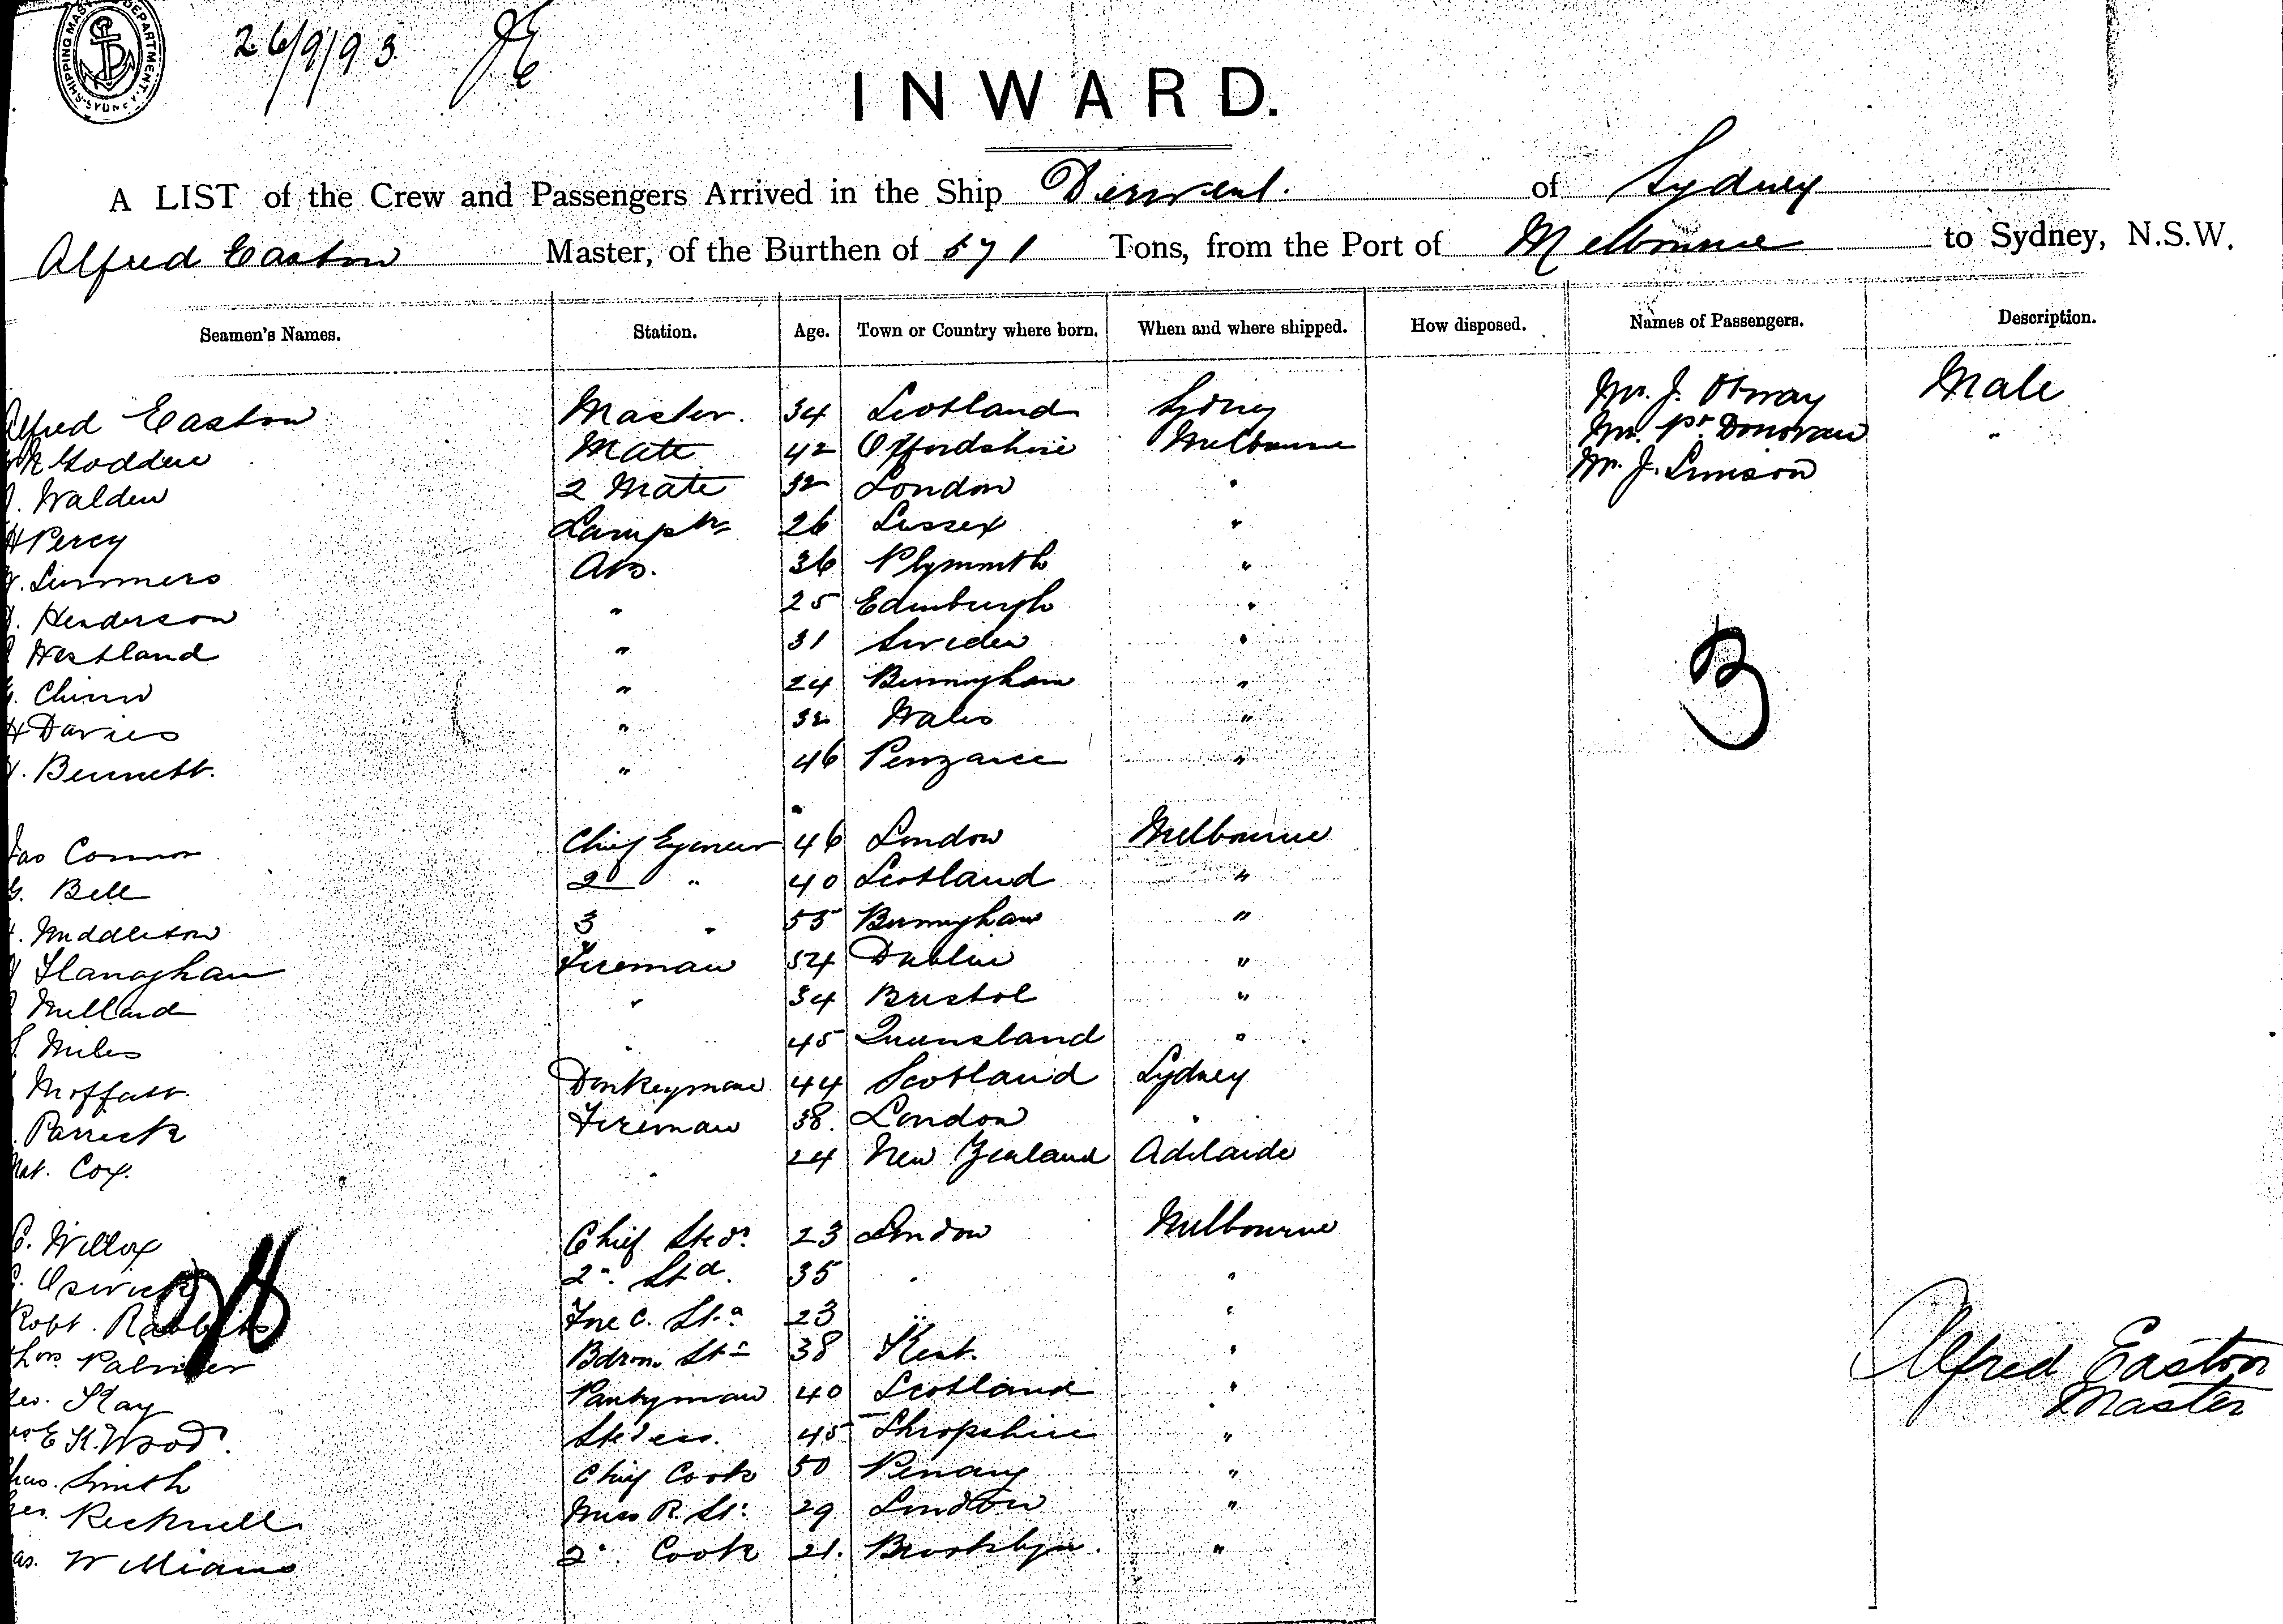 SHIPPING MASTER'S DEPARTMENT SYDNEY
26/9/93. JE
INWARD.
A LIST of the Crew and Passengers Arrived in the Ship Derwent. of Sydney
Alfred Easton Master, of the Burthen of 571 Tons, from the Port of Melbourne to Sydney, N.S.W.
Seamen's Names. Station. Age. Town or Country where born. When and where shipped. How disposed. Names of Passengers. Description.
Alfred Easton Master. 34 Scotland Sydney Mr. J. Otway Male
Godden Mate 42 Oxfordshire Melbourne Mr. Pr. Donovan "
Walden 2 Mate 32 London " Mr. J. Simson
H Percy Lampr 26 Sussex "
Summers ABs. 36 Plymouth "
Henderson " 25 Edinburgh "
Westland " 31 Sweden "
Chinn " 24 Birmingham "
H Davies " 32 Wales "
Bennett. " 46 Penzance "
Jas Connor Chief Engineer 46 London Melbourne
G. Bell 2 " 40 Scotland "
Middleton 3 " 53 Birmingham "
Flanaghan Fireman 54 Dublin "
Millard " 34 Bristol "
Miles " 45 Queensland "
Moffatt. Donkeyman 44 Scotland Sydney
Parrick Fireman 38. London "
Nat. Cox. " 24 New Zealand Adelaide
C. Willox Chief Sted. 23 London Melbourne
Oswick 2n. Std. 35 " "
Robt. Rabbits Fre C. Std 23 " "
Thos Palmer Bdrm. Std 38 Kent. "
Geo. Hay Pantryman 40 Scotland "
E K. Wood. Stdess. 45 Shropshire "
Chas. Smith Chief Cook 50 Penang "
Recknell Mess R. St. 29 London "
Jas. Williams 2n. Cook 21. Brooklyn. "
28
3
Alfred Easton
Master